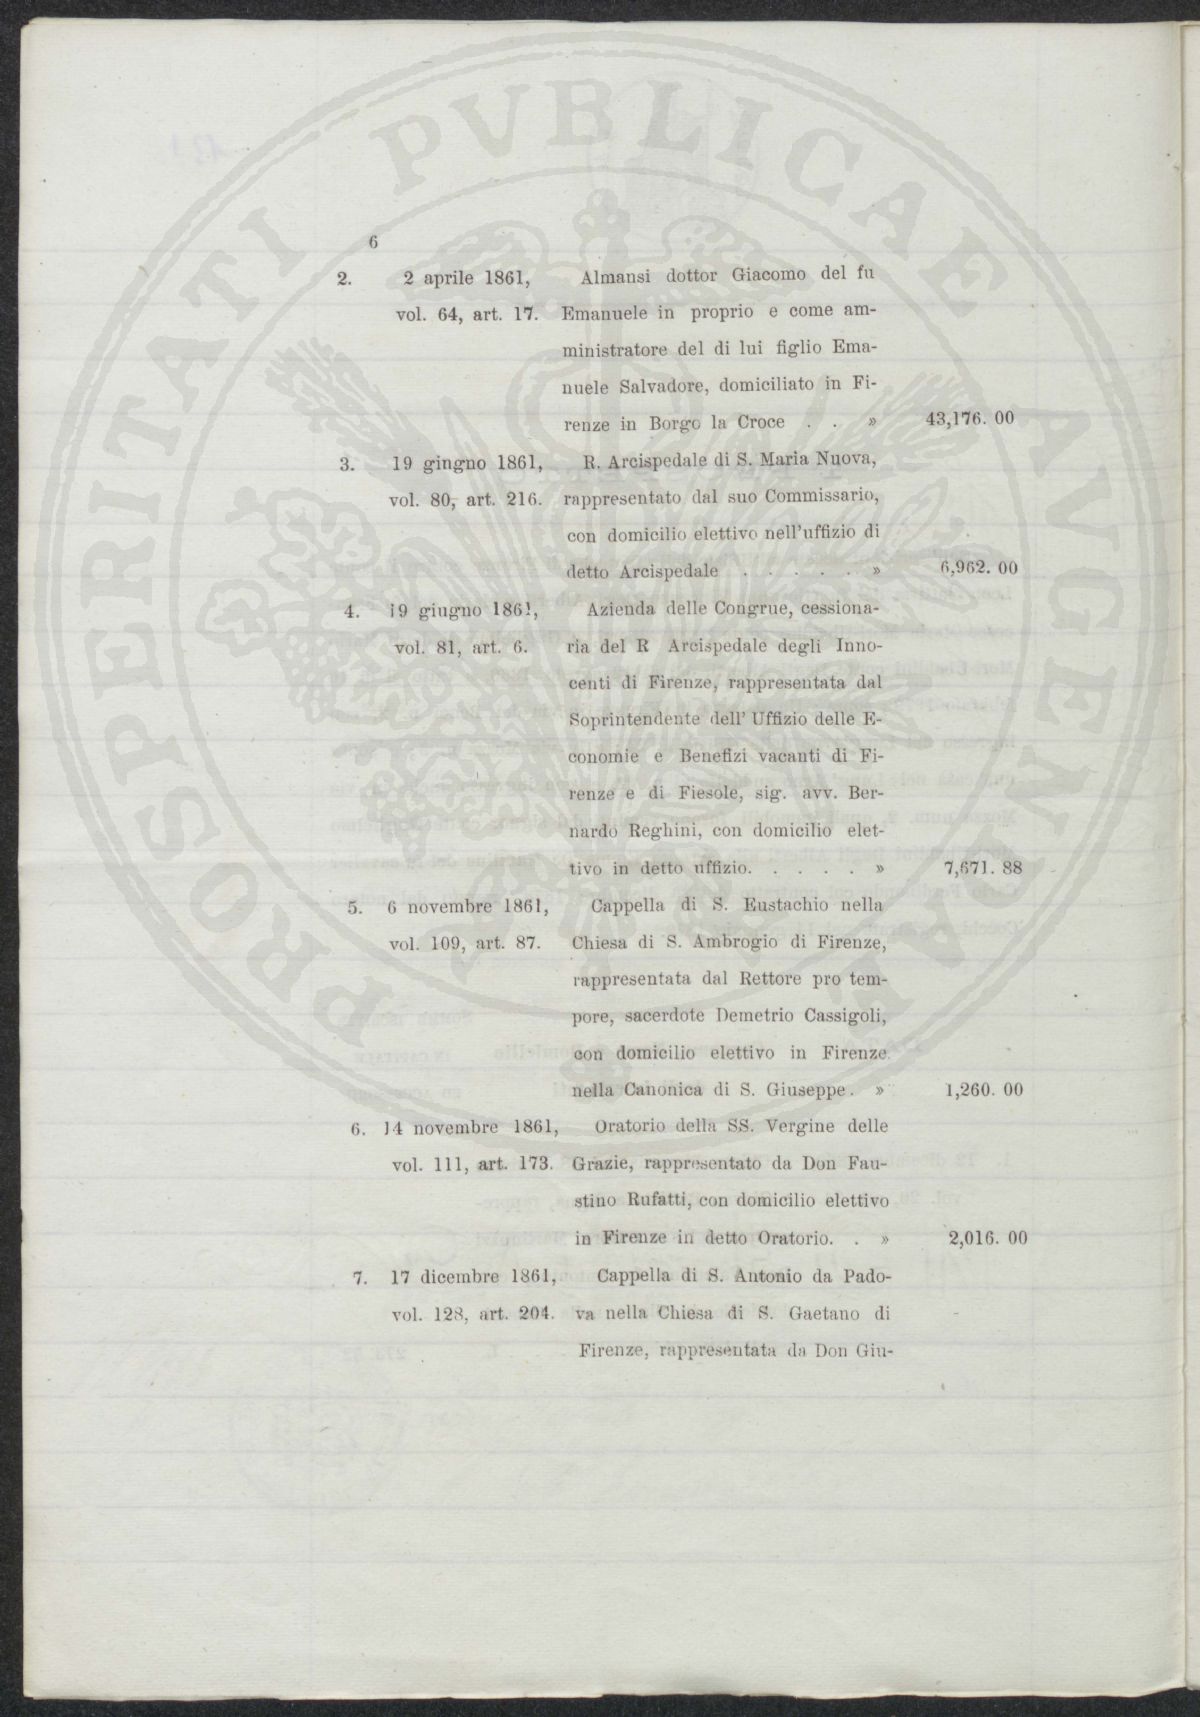 PROSPERITATI PVBLICAE AVGENDAE
6
2. 2 aprile 1861, Almansi dottor Giacomo del fu
vol. 64, art. 17. Emanuele in proprio e come am-
ministratore del di lui figlio Ema-
nuele Salvadore, domiciliato in Fi-
renze in Borgo la Croce . . » 43,176. 00
3. 19 gingno 1861, R. Arcispedale di S. Maria Nuova,
vol. 80, art. 216. rappresentato dal suo Commissario,
con domicilio elettivo nell'uffizio di
detto Arcispedale . . . . . » 6,962. 00
4. 19 giugno 1861, Azienda delle Congrue, cessiona-
vol. 81, art. 6. ria del R Arcispedale degli Inno-
centi di Firenze, rappresentata dal
Soprintendente dell' Uffizio delle E-
conomie e Benefizi vacanti di Fi-
renze e di Fiesole, sig. avv. Ber-
nardo Reghini, con domicilio elet-
tivo in detto uffizio. . . . . » 7,671. 88
5. 6 novembre 1861, Cappella di S. Eustachio nella
vol. 109, art. 87. Chiesa di S. Ambrogio di Firenze,
rappresentata dal Rettore pro tem-
pore, sacerdote Demetrio Cassigoli,
con domicilio elettivo in Firenze
nella Canonica di S. Giuseppe. » 1,260. 00
6. 14 novembre 1861, Oratorio della SS. Vergine delle
vol. 111, art. 173. Grazie, rappresentato da Don Fau-
stino Rufatti, con domicilio elettivo
in Firenze in detto Oratorio. . » 2,016. 00
7. 17 dicembre 1861, Cappella di S. Antonio da Pado-
vol. 128, art. 204. va nella Chiesa di S. Gaetano di
Firenze, rappresentata da Don Giu-